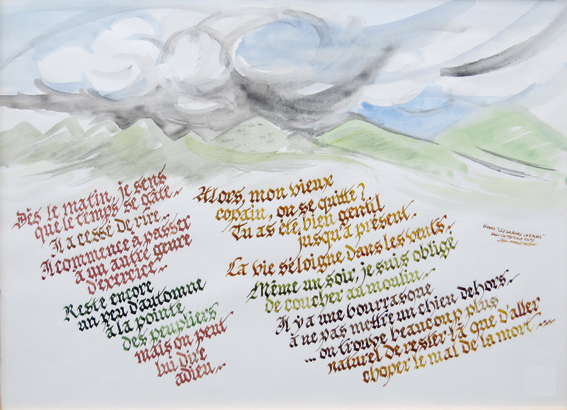 Dès le matin, je sens
que le temps se gâte.
Il a cessé de rire.
Il commence à passer
à un autre genre
d'exercice.
Reste encore
un peu d'automne
à la pointe
des peupliers
mais on peut
lui dire
adieu...
Alors, mon vieux
copain, on se quitte ?
Tu as été bien gentil
jusqu'à présent.
La vie s'éloigne dans les vents.
Même un soir, je suis obligé
de coucher au moulin.
Il y a une bourrasque
à ne pas mettre un chien dehors.
... on trouve beaucoup plus
naturel de rester là que d'aller
choper le mal de la mort ...